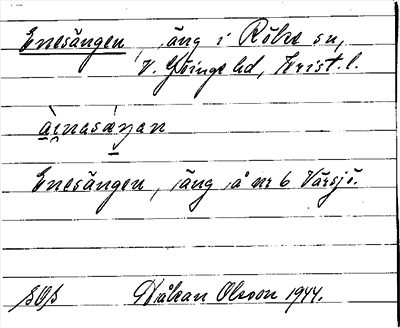 Enesängen, äng i Röke sn,
V. Göinge hd, Krist. l.
Enesängen, äng å nr 6 Värsjö.
Håkan Olsson 1944.